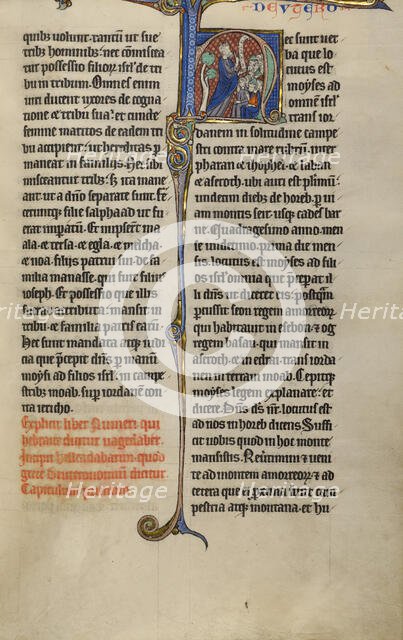 DEUTERO
quibus voluit tantum ut sue
tribus hominibus: nec commisceat
tur possessio filiorum israel de tri
bu in tribum. Omnes enim
viri ducent uxores de cogna
tione et tribu sua: et cuncte
femine maritos de eadem tri
bu accipient: ut hereditas per
maneat in familiis: nec sibi
misceantur tribus: sed ita mane
ant ut a domino separate sunt. Fe
ceruntque filie salphaad ut fu
erat imperatum. Et nupserunt ma
ala et tersa et egla et melcha
et noa filiis patrui sui de fa
milia manasse qui fuit filius
ioseph. Et possessio que illis
fuerat attributa: mansit in
tribu et familia patris earum.
Hec sunt mandata atque iudi
cia que precepit dominus per manum
moysi ad filios israel: in cam
pestribus moab super iordanem con
tra iericho.
Explicit liber Numeri qui
hebraice dicitur vagedaber.
Incipit helleadabarim quod
grece Deuteronomium dicitur.
Capitulum
ec sunt ver
ba que lo
cutus est
moyses ad
omnem israel
trans ior
danem in solitudine campe
stri contra mare rubrum: inter
pharan et thophel et laban
et aseroth: ubi auri est plurimum:
undecim diebus de horeb per vi
am montis seir usque cades bar
ne. Quadragesimo anno: unde
cimo mense: prima die men
sis: locutus est moyses ad fili
os israel omnia que preceperat il
li dominus ut diceret eis: postquam
percussit seon regem amorreorum
qui habitavit in esebon: et og
regem basan qui mansit in
aseroth et in edrai trans iorda
nem in terra moab. Cepitque
moyses legem explanare: et
dicere. Dominus deus noster locutus est
ad nos in horeb dicens. Suffi
cit vobis quod in hoc monte
mansistis. Revertimini et veni
te ad montem amorreorum: et ad
cetera que ei proxima sunt cam
pestria atque montana: et hu
Heritage
Heritage
Heritage
Heritage
Heritage
Heritage